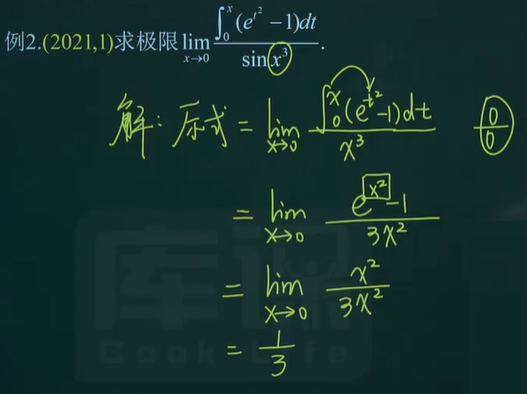 例2.(2021,1)求极限 lim_{x→0} ∫_0^x (e^{t^2} − 1)dt / sin x^3 .
解: 原式 = lim_{x→0} ∫_0^x (e^{t^2} − 1)dt / x^3    0/0
= lim_{x→0} (e^{x^2} − 1) / 3x^2
= lim_{x→0} x^2 / 3x^2
= 1/3
库课
Cook Life